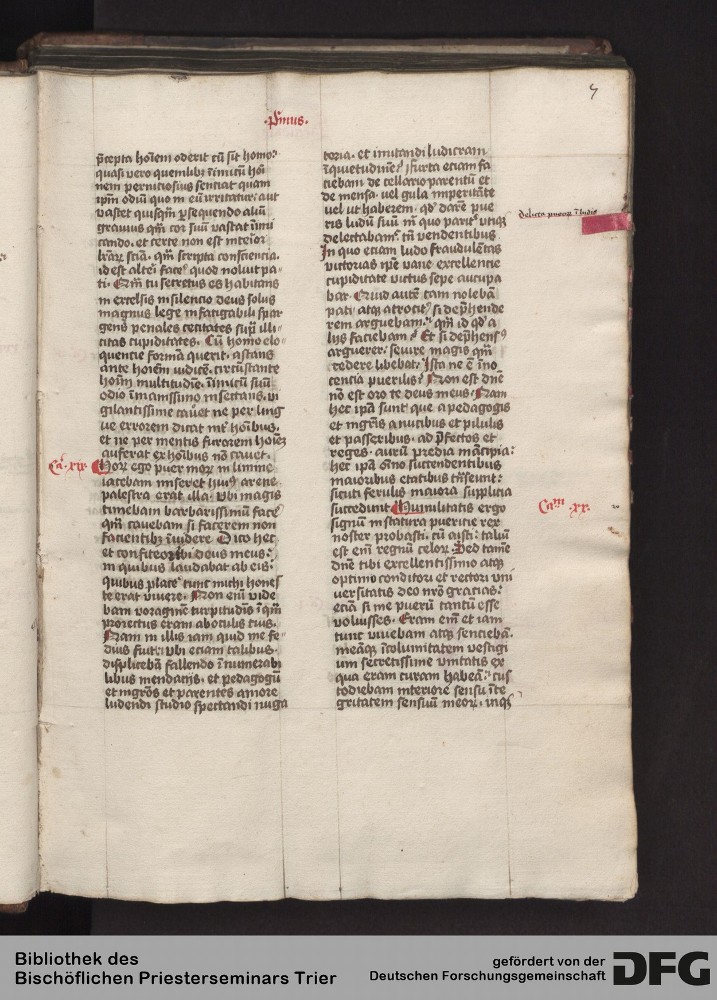 ·pͥmus·
7
p̄cepta hoīem oderit cū sit homo?
quasi vero quemlibꝫ īimicū hoī
nem perniciosius sentiat quam
ip̄m odiū quo in eū irritatur? aut
vastet quisqꝫ ꝑsequendo aliū
grauius qm̄ cor suū vastat inimi
cando. et certe non est inteior
lr̄arꝝ sciā. qm̄ scripta consciencia.
id est alteri facē quod nolit pa-
ti. Qm̄ tu secretus es habitans
in excelsis in silencio deus solus
magnus lege in fatigabili spar
gens penales cecitates sup̄ illi-
citas cupiditates. Cū homo elo-
quentie formā querit. astans
ante hoiēm iudicē. circūstante
hoīm multitudīe. īimicū suū
odio īmanissimo insectans. vi
gilantissime cauet ne per ling
ue errorem dicat int̄ hoībus.
et ne per mentis furorem hoīeꝫ
auferat ex hoībus nō cauet.
Ca. xix
Horꝝ ego puer morꝝ in limine
iacebam miser et huiꝰ arene
palestra erat illa. vbi magis
timebam barbarissimū facē
qm̄ cauebam si facerem non
facientibꝫ īuidere. Dico hec
et confiteor tibi deus meus?
in quibus laudabat ab eis.
quibus placē tunc michi hones
te erat viuere. Non eim̄ vide
bam voraginē turpitudīs ī qm̄
proiectus eram ab oculis tuis.
Nam in illis iam quid me fe-
dius fuit? vbi eciam talibus
displicebā fallendo īnumerabi
libus mendacijs. et pedagogū
et mgr̄os et parentes amore
ludendi studio spectandi nuga
toria. et imitandi ludicram
īquietudinē? ffurta eciam fa
ciebam de cellario parentū et
de mensa. vel gula imperitāte
vel ut haberem. qd̓ darē pue
delicta pueroꝝ ī ludis
ris ludū suū m̄ quo parit̓ vtiqꝫ
delectabant̓ tn̄ vendentibus
In quo eciam ludo fraudulētas
victorias ip̄e vane excellencie
cupiditate victus sepe aucupa
bar. Quid autē tam nolebā
pati. atqꝫ atrocit̓ si dep̄hende
rem arguebam. qm̄ id qd̓ a
lijs faciebam? Et si dep̄hensꝰ
arguerer. seuire magis qm̄
cedere libebat. Ista ne ē īno
cencia puerilis? Non est dn̄e
nō est oro te deus meus. Nam
hec ip̄a sunt que a pedagogis
et mgr̄is a nucibus et pilulis
et passeribus. ad p̄fectos et
reges. aurū predia mācipia?
hec ip̄a om̄o succendentibus
maioribus etatibus trāseunt?
sicuti ferulis maiora supplicia
Caᵐ .xx.
succedunt. Humilitatis ergo
signū in statura puericie rex
noster probasti. cū aisti? taliū
est em̄ regnū celorꝝ. Sed tamē
dn̄e tibi excellentissimo atqꝫ
optimo conditori et rectori vni
uersitatis deo nr̄o gracias?
eciā si me puerū tantū esse
voluisses. Eram em̄ et iam
tunc viuebam atqꝫ senciebā.
meāqꝫ īcolumitatem vestigi
um secretissime vnitatis ex
qua eram curam habeā? cus
todiebam interiore sensu īte
gritatem sensuū meorꝝ. inqꝫ
Bibliothek des
Bischöflichen Priesterseminars Trier
gefördert von der
Deutschen Forschungsgemeinschaft
DFG